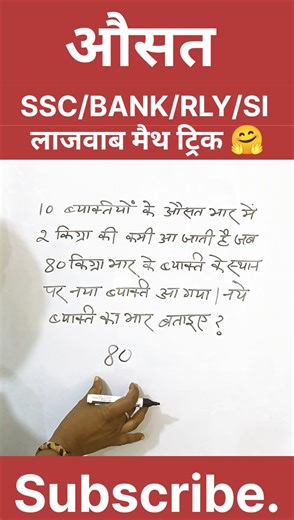 औसत
SSC/BANK/RLY/SI
लाजवाब मैथ ट्रिक 🤗
10 व्यक्तियों के औसत भार में
2 किग्रा की कमी आ जाती है जब
80 किग्रा भार के व्यक्ति के स्थान
पर नया व्यक्ति आ गया। नये
व्यक्ति का भार बताइए?
80
Subscribe.